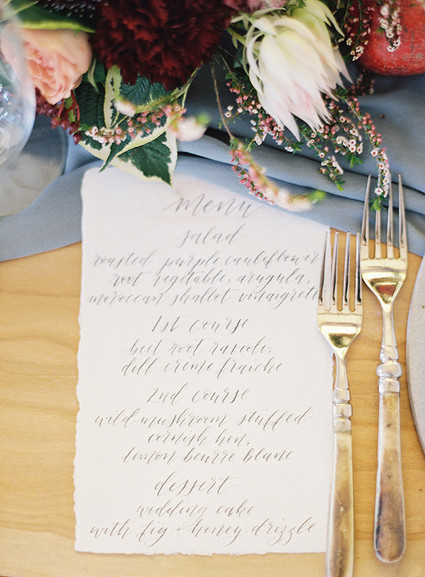 menu
salad
roasted purple cauliflower
root vegetable, arugula,
moroccan shallot vinaigrette
1st course
beet root ravioli,
dill creme fraiche
2nd course
wild mushroom stuffed
cornish hen,
lemon beurre blanc
dessert
wedding cake
with fig + honey drizzle